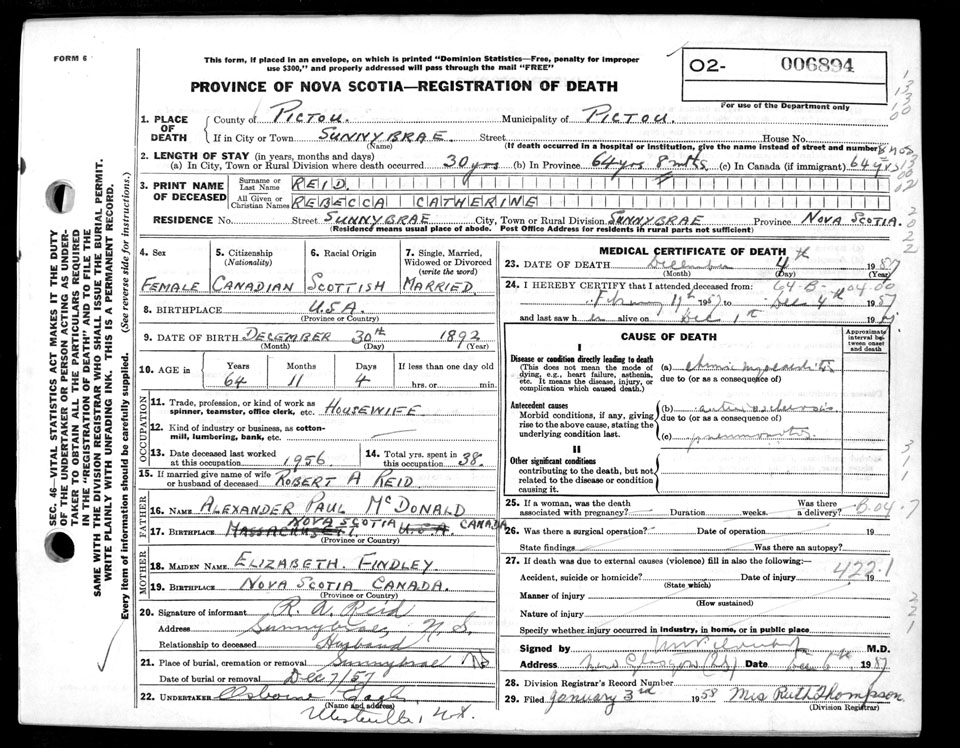 FORM 6
This form, if placed in an envelope, on which is printed "Dominion Statistics—Free, penalty for improper
use $300," and properly addressed will pass through the mail "FREE"
O2- 006894
For use of the Department only
PROVINCE OF NOVA SCOTIA—REGISTRATION OF DEATH
1. PLACE OF DEATH
County of PICTOU. Municipality of PICTOU.
If in City or Town SUNNYBRAE Street House No.
(Name) (If death occurred in a hospital or institution, give the name instead of street and number)
2. LENGTH OF STAY (in years, months and days)
(a) In City, Town or Rural Division where death occurred 30 yrs (b) In Province 64 yrs 8 mths (c) In Canada (if immigrant) 64 yrs
3. PRINT NAME OF DECEASED
Surname or Last Name REID
All Given or Christian Names REBECCA CATHERINE
RESIDENCE No. Street SUNNYBRAE City, Town or Rural Division SUNNYBRAE Province NOVA SCOTIA.
(Residence means usual place of abode. Post Office Address for residents in rural parts not sufficient)
SEC. 46—VITAL STATISTICS ACT MAKES IT THE DUTY
OF THE UNDERTAKER OR PERSON ACTING AS UNDER-
TAKER TO OBTAIN ALL THE PARTICULARS REQUIRED
IN THE "REGISTRATION OF DEATH" AND TO FILE THE
SAME WITH THE DIVISION REGISTRAR WHO SHALL ISSUE THE BURIAL PERMIT.
WRITE PLAINLY WITH UNFADING INK. THIS IS A PERMANENT RECORD.
Every item of information should be carefully supplied. (See reverse side for instructions.)
4. Sex 5. Citizenship (Nationality) 6. Racial Origin 7. Single, Married, Widowed or Divorced (write the word)
FEMALE CANADIAN SCOTTISH MARRIED.
8. BIRTHPLACE U.S.A.
(Province or Country)
9. DATE OF BIRTH DECEMBER 30th 1892
(Month) (Day) (Year)
10. AGE in Years Months Days If less than one day old
64 11 4 hrs. or min.
OCCUPATION
11. Trade, profession, or kind of work as
spinner, teamster, office clerk, etc. HOUSEWIFE
12. Kind of industry or business, as cotton-
mill, lumbering, bank, etc. —
13. Date deceased last worked at this occupation 1956 14. Total yrs. spent in this occupation 38.
15. If married give name of wife
or husband of deceased ROBERT A REID
FATHER
16. Name ALEXANDER PAUL McDONALD
NOVA SCOTIA CANADA
17. Birthplace MASSACHUSETT. U.S.A.
(Province or Country)
MOTHER
18. MAIDEN NAME ELIZABETH FINDLEY
19. BIRTHPLACE NOVA SCOTIA CANADA.
(Province or Country)
20. Signature of informant R. A. Reid
Address Sunnybrae N. S.
Relationship to deceased Husband
21. Place of burial, cremation or removal Sunnybrae NS
Date of burial or removal Dec 7/57
22. UNDERTAKER Osborne
(Name and address)
Westville, N.S.
MEDICAL CERTIFICATE OF DEATH
23. DATE OF DEATH December 4th 1957
(Month) (Day) (Year)
24. I HEREBY CERTIFY that I attended deceased from:
19th 1957 to Dec 4th 1957
and last saw her alive on Dec 1st 1957
CAUSE OF DEATH
Approximate interval between onset and death
I
Disease or condition directly leading to death
(This does not mean the mode of dying, e.g., heart failure, asthenia, etc. It means the disease, injury, or complication which caused death.)
(a) chronic myocarditis
due to (or as a consequence of)
Antecedent causes
Morbid conditions, if any, giving rise to the above cause, stating the underlying condition last.
(b) arteriosclerosis
due to (or as a consequence of)
(c)
II
Other significant conditions
contributing to the death, but not related to the disease or condition causing it.
25. If a woman, was the death associated with pregnancy? Duration weeks. Was there a delivery?
26. Was there a surgical operation? Date of operation 19
State findings Was there an autopsy?
27. If death was due to external causes (violence) fill in also the following:—
422.1
Accident, suicide or homicide? Date of injury 19
(State which)
Manner of injury
(How sustained)
Nature of injury
Specify whether injury occurred in industry, in home, or in public place
Signed by M.D.
Address New Glasgow Date Dec 6th 1957
28. Division Registrar's Record Number
29. Filed January 3rd 1958 Mrs Ruth Thompson
(Division Registrar)